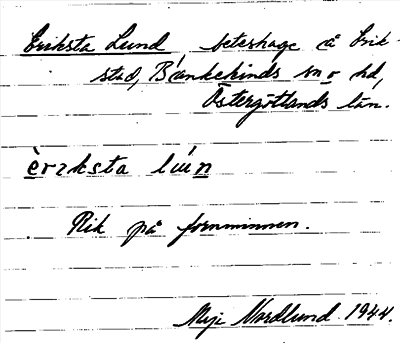 Eriksta Lund beteshage å Erik-
stad, Bankekinds sn o hd,
Östergötlands län.
èrɪksta lún
Rik på fornminnen.
Nordlund 1944.